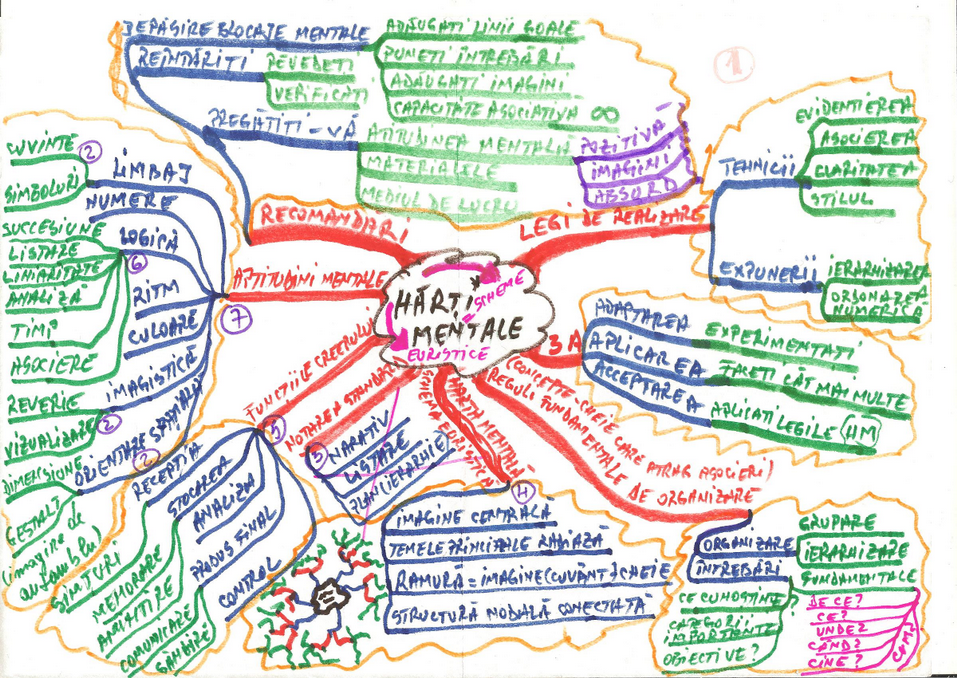 DEPĂȘIRE BLOCAJE MENTALE
ADĂUGAȚI LINII GOALE
PUNEȚI ÎNTREBĂRI
ADĂUGAȚI IMAGINI
CAPACITATE ASOCIATIVĂ ∞
REÎNTĂRIȚI
PEVEDEȚI
VERIFICAȚI
PREGĂTIȚI-VĂ
ATITUDINEA MENTALĂ
POZITIVĂ
IMAGINI
ABSURD
MATERIALELE
MEDIUL DE LUCRU
1
RECOMANDĂRI
LEGI DE REALIZARE
TEHNICII
EVIDENȚIEREA
ASOCIEREA
CLARITATEA
STILUL
EXPUNERII
IERARHIZAREA
ORDONAREA
NUMERICĂ
HĂRȚI
MENTALE
SCHEME
EURISTICE
APTITUDINI MENTALE
7
LIMBAJ
2
CUVINTE
SIMBOLURI
NUMERE
LOGICĂ
6
SUCCESIUNE
LISTARE
LINIARITATE
ANALIZĂ
TIMP
ASOCIERE
RITM
CULOARE
IMAGISTICĂ
2
REVERIE
VIZUALIZARE
ORIENTARE SPAȚIALĂ
2
DIMENSIUNE
GESTALT
(imagine de
ansamblu)
3 A
ADAPTAREA
EXPERIMENTAȚI
APLICAREA
FACEȚI CÂT MAI MULTE
ACCEPTAREA
APLICAȚI LEGILE HM
FUNCȚIILE CREERULUI
5
RECEPȚIA
SIMȚURI
STOCAREA
MEMORARE
AMINTIRE
ANALIZA
PRODUS FINAL
COMUNICARE
GÂNDIRE
CONTROL
NOTAREA STANDARD
3
NARATIV
LISTARE
PLAN(IERARHIE)
HARTA MENTALĂ
SCHEMA EURISTICĂ
4
IMAGINE CENTRALĂ
TEMELE PRINCIPALE RADIAZĂ
RAMURĂ = IMAGINE (CUVÂNT) CHEIE
STRUCTURĂ NODALĂ CONECTATĂ
(CONCEPTE-CHEIE CARE ATRAG ASOCIERI)
REGULI FUNDAMENTALE DE ORGANIZARE
ORGANIZARE
GRUPARE
IERARHIZARE
ÎNTREBĂRI
FUNDAMENTALE
CE CUNOȘTINȚE?
CATEGORII
IMPORTANTE
OBIECTIVE?
DE CE?
CE?
UNDE?
CÂND?
CINE?